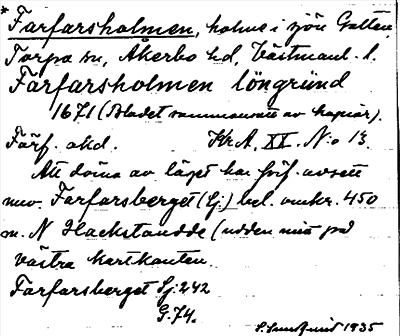 * Farfarsholmen, holme i sjön Gatten,
Torpa sn, Åkerbo hd, Västmanl. l.
Farfarsholmen löngründ
1671 (Bladet sammansatt av kopior).
Färf. okd. Kr.A. XX. N:o 13.
Att döma av läget har förf. avsett
nuv. Farfarsberget (Gj.) bel. omkr. 450
m. N Hackstaudde (udden mitt på
västra kartkanten.
Farfarsberget Gj. 242
G. 74.
1935